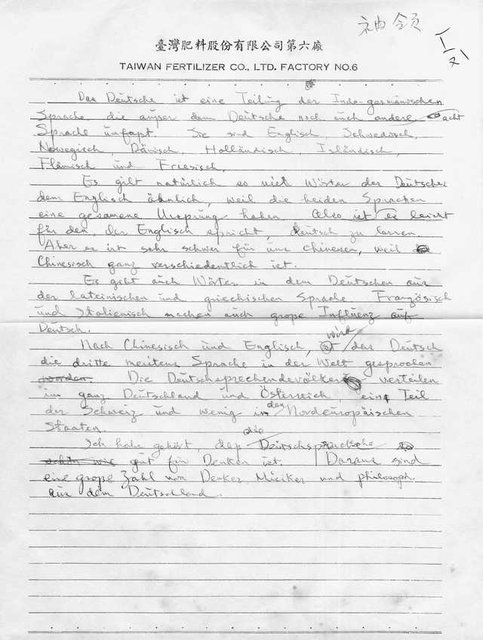 袖領
臺灣肥料股份有限公司第六廠
TAIWAN FERTILIZER CO., LTD. FACTORY NO.6
Das Deutsche ist eine Teilung der Indo-germanischen
Sprache, die ausser dem Deutsche noch auch andere acht
Sprache umfasst. Sie sind Englisch, Schwedisch,
Norwegisch Dänisch, Holländisch, Isländisch,
Flämisch und Friesisch.
Es gibt natürlich so viel Wörter der Deutschen
dem Englisch ähnlich, weil die beiden Sprachen
eine Ursprung haben. Also ist es leicht
für den, der Englisch spricht, deutsch zu lernen.
Aber er ist sehr schwer für uns Chinesen, weil
Chinesisch ganz verschiedentlich ist.
Es geht auch Wörter in dem Deutschen aus
der lateinischen und griechischen Sprache. Französisch
und Italienisch machen auch grosse Influenz auf
Deutsch.
Nach Chinesisch und Englisch, wird das Deutsch
die dritte meistens Sprache in der Welt gesprochen
worden. Die Deutschsprechendevölker verteilen
im ganz Deutschland und Österreich, eine Teil
der Schweiz und wenig in den Nordeuropäischen
Staaten.
Ich habe gehört, dass die Deutschsprache
gut für Denken ist. Daraus sind
eine grosse Zahl von Denker Musiker und philosoph
aus dem Deutschland.